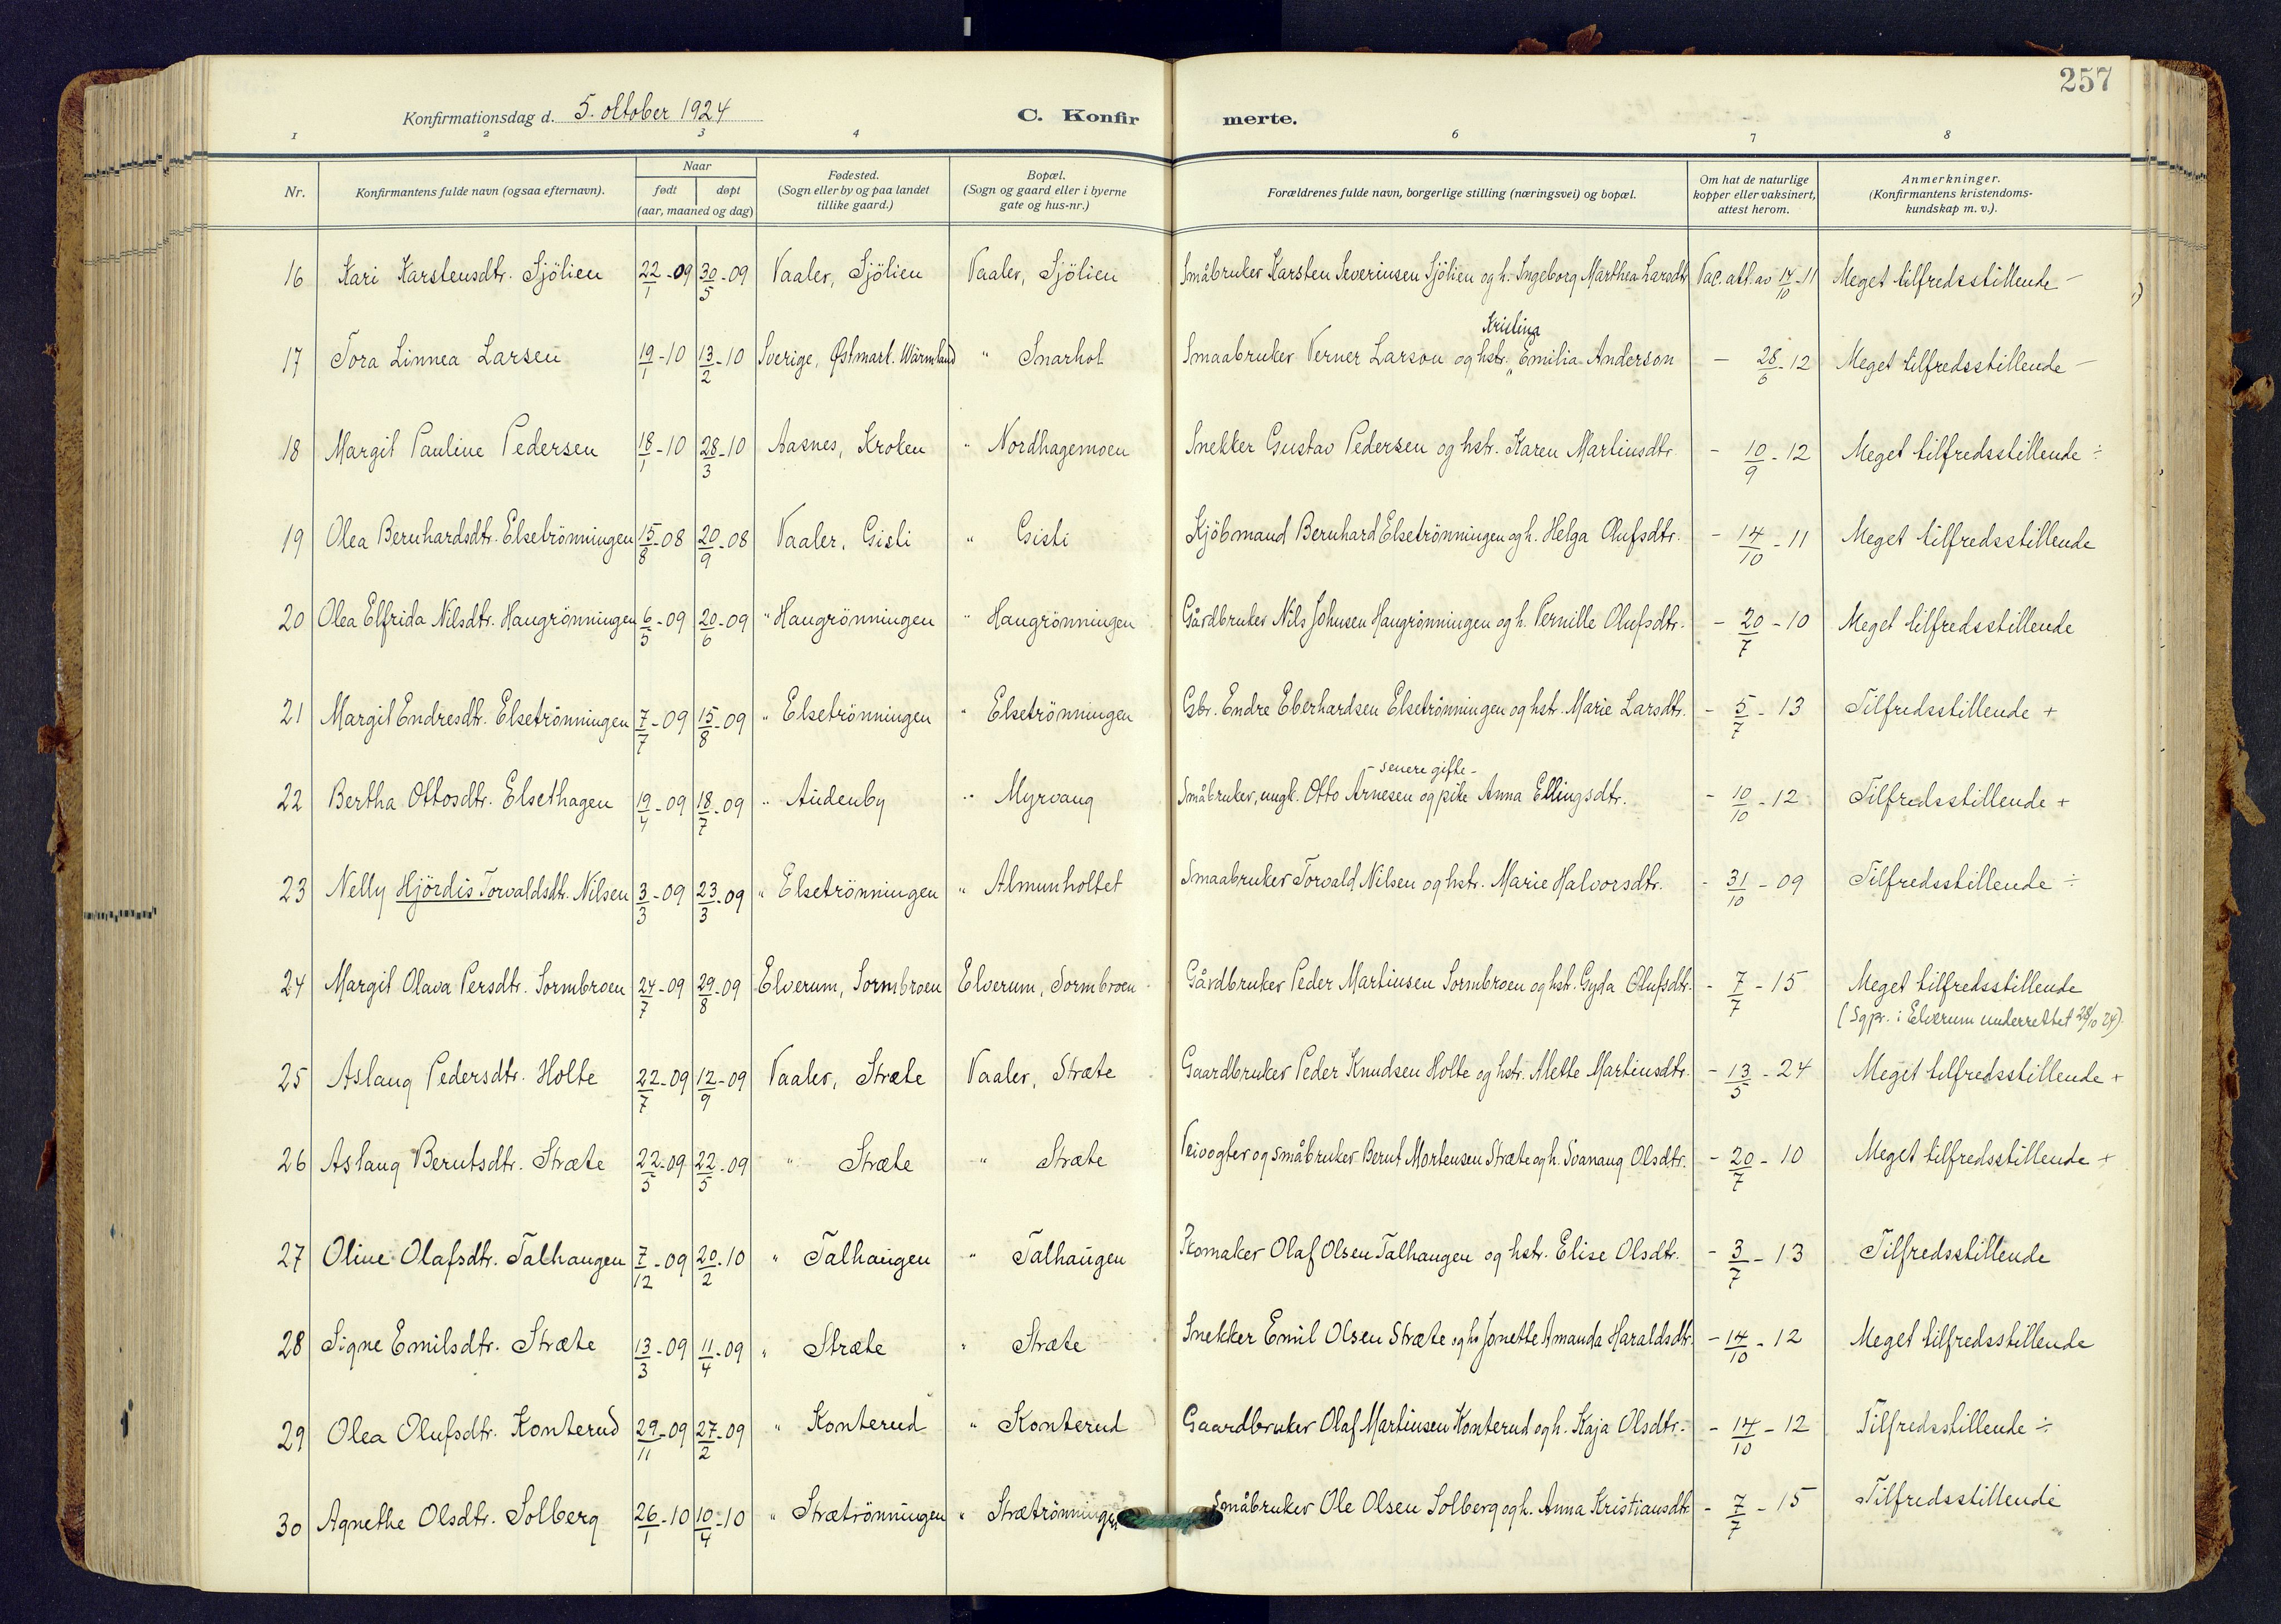 257
Konfirmationsdag d. 5. oktober 1924 C. Konfir merte.
1 2 3 4 6 7 8
Nr. Konfirmantens fulde navn (ogsaa efternavn). Naar født døpt (aar, maaned og dag) Fødested. (Sogn eller by og paa landet tillike gaard.) Bopæl. (Sogn og gaard eller i byerne gate og hus-nr.) Forældrenes fulde navn, borgerlige stilling (næringsvei) og bopæl. Om hat de naturlige kopper eller vaksinert, attest herom. Anmerkninger. (Konfirmantens kristendoms-kundskap m. v.).
16 Kari Karstensdtr. Sjölien 22/1-09 30/5-09 Vaaler, Sjölien Vaaler, Sjölien Småbruker Karsten Severinsen Sjölien og h. Ingeborg Marthea Larsdtr Vac. att. av 14/10-11 Meget tilfredsstillende -
17 Tora Linnea Larsen 19/1-10 13/2-10 Sverige, Östmark. Wärmland " Snarhol Smaabruker Verner Larson og hstr. Kristina Emilia Anderson - 28/6-12 Meget tilfredsstillende -
18 Margit Pauline Pedersen 18/1-10 28/3-10 Aasnes, Kroken " Nordhagemoen Snekker Gustav Pedersen og hstr. Karen Martinsdtr - 10/9-12 Meget tilfredsstillende ÷
19 Olea Bernhardsdtr. Elsetrönningen 15/8-08 20/9-08 Vaaler, Gisti " Gisti Kjöbmand Bernhard Elsetrönningen og h. Helga Olufsdtr. - 14/10-11 Meget tilfredsstillende
20 Olea Elfrida Nilsdtr. Haugrönningen 6/5-09 20/6-09 " Haugrönningen " Haugrönningen Gårdbruker Nils Johnsen Haugrönningen og h. Pernille Olufsdtr. - 20/7-10 Meget tilfredsstillende
21 Margit Endresdtr. Elsetrönningen 7/7-09 15/8-09 " Elsetrönningen " Elsetrönningen Gbr. Endre Eberhardsen Elsetrönningen og hstr. Marie Larsdtr. - 5/7-13 Tilfredsstillende +
22 Bertha Ottosdtr. Elsethagen 19/4-09 18/7-09 " Audenby " Myrvang Småbruker, ungk. Otto Arnesen og pike Anna Ellingsdtr. - senere gifte - - 10/10-12 Tilfredsstillende +
23 Nelly Hjördis Torvaldsdtr. Nilsen 3/3-09 23/3-09 " Elsetrönningen " Almunholtet Smaabruker Torvald Nilsen og hstr. Marie Halvorsdtr. - 31/10-09 Tilfredsstillende ÷
24 Margit Olava Persdtr. Sormbroen 24/7-09 29/8-09 Elverum, Sormbroen Elverum, Sormbroen Gårdbruker Peder Martinsen Sormbroen og hstr. Gyda Olufsdtr. - 7/7-15 Meget tilfredsstillende
(Sgpr. i Elverum underrettet 28/10 24).
25 Aslaug Pedersdtr. Holte 22/7-09 12/9-09 Vaaler, Stræte Vaaler, Stræte Gaardbruker Peder Knudsen Holte og hstr. Mette Martinsdtr. - 13/5-24 Meget tilfredsstillende +
26 Aslaug Berntsdtr. Stræte 22/5-09 22/5-09 " Stræte " Stræte Veivogter og småbruker Bernt Mortensen Stræte og h. Svanaug Olsdtr. - 20/7-10 Meget tilfredsstillende +
27 Oline Olafsdtr. Talhaugen 7/12-09 20/2-10 " Talhaugen " Talhaugen Skomaker Olaf Olsen Talhaugen og hstr. Elise Olsdtr. - 3/7-13 Tilfredsstillende
28 Signe Emilsdtr. Stræte 13/3-09 11/4-09 " Stræte " Stræte Snekker Emil Olsen Stræte og h. Jonette Amanda Haraldsdtr. - 14/10-12 Meget tilfredsstillende
29 Olea Olufsdtr. Konterud 29/11-09 27/2-09 " Konterud " Konterud Gaardbruker Olaf Martinsen Konterud og h. Kaja Olsdtr. - 14/10-12 Tilfredsstillende ÷
30 Agnethe Olsdtr. Solberg 26/1-10 10/4-10 " Strætrönningen " Strætrönningen Småbruker Ole Olsen Solberg og h. Anna Kristiansdtr - 7/7-15 Tilfredsstillende